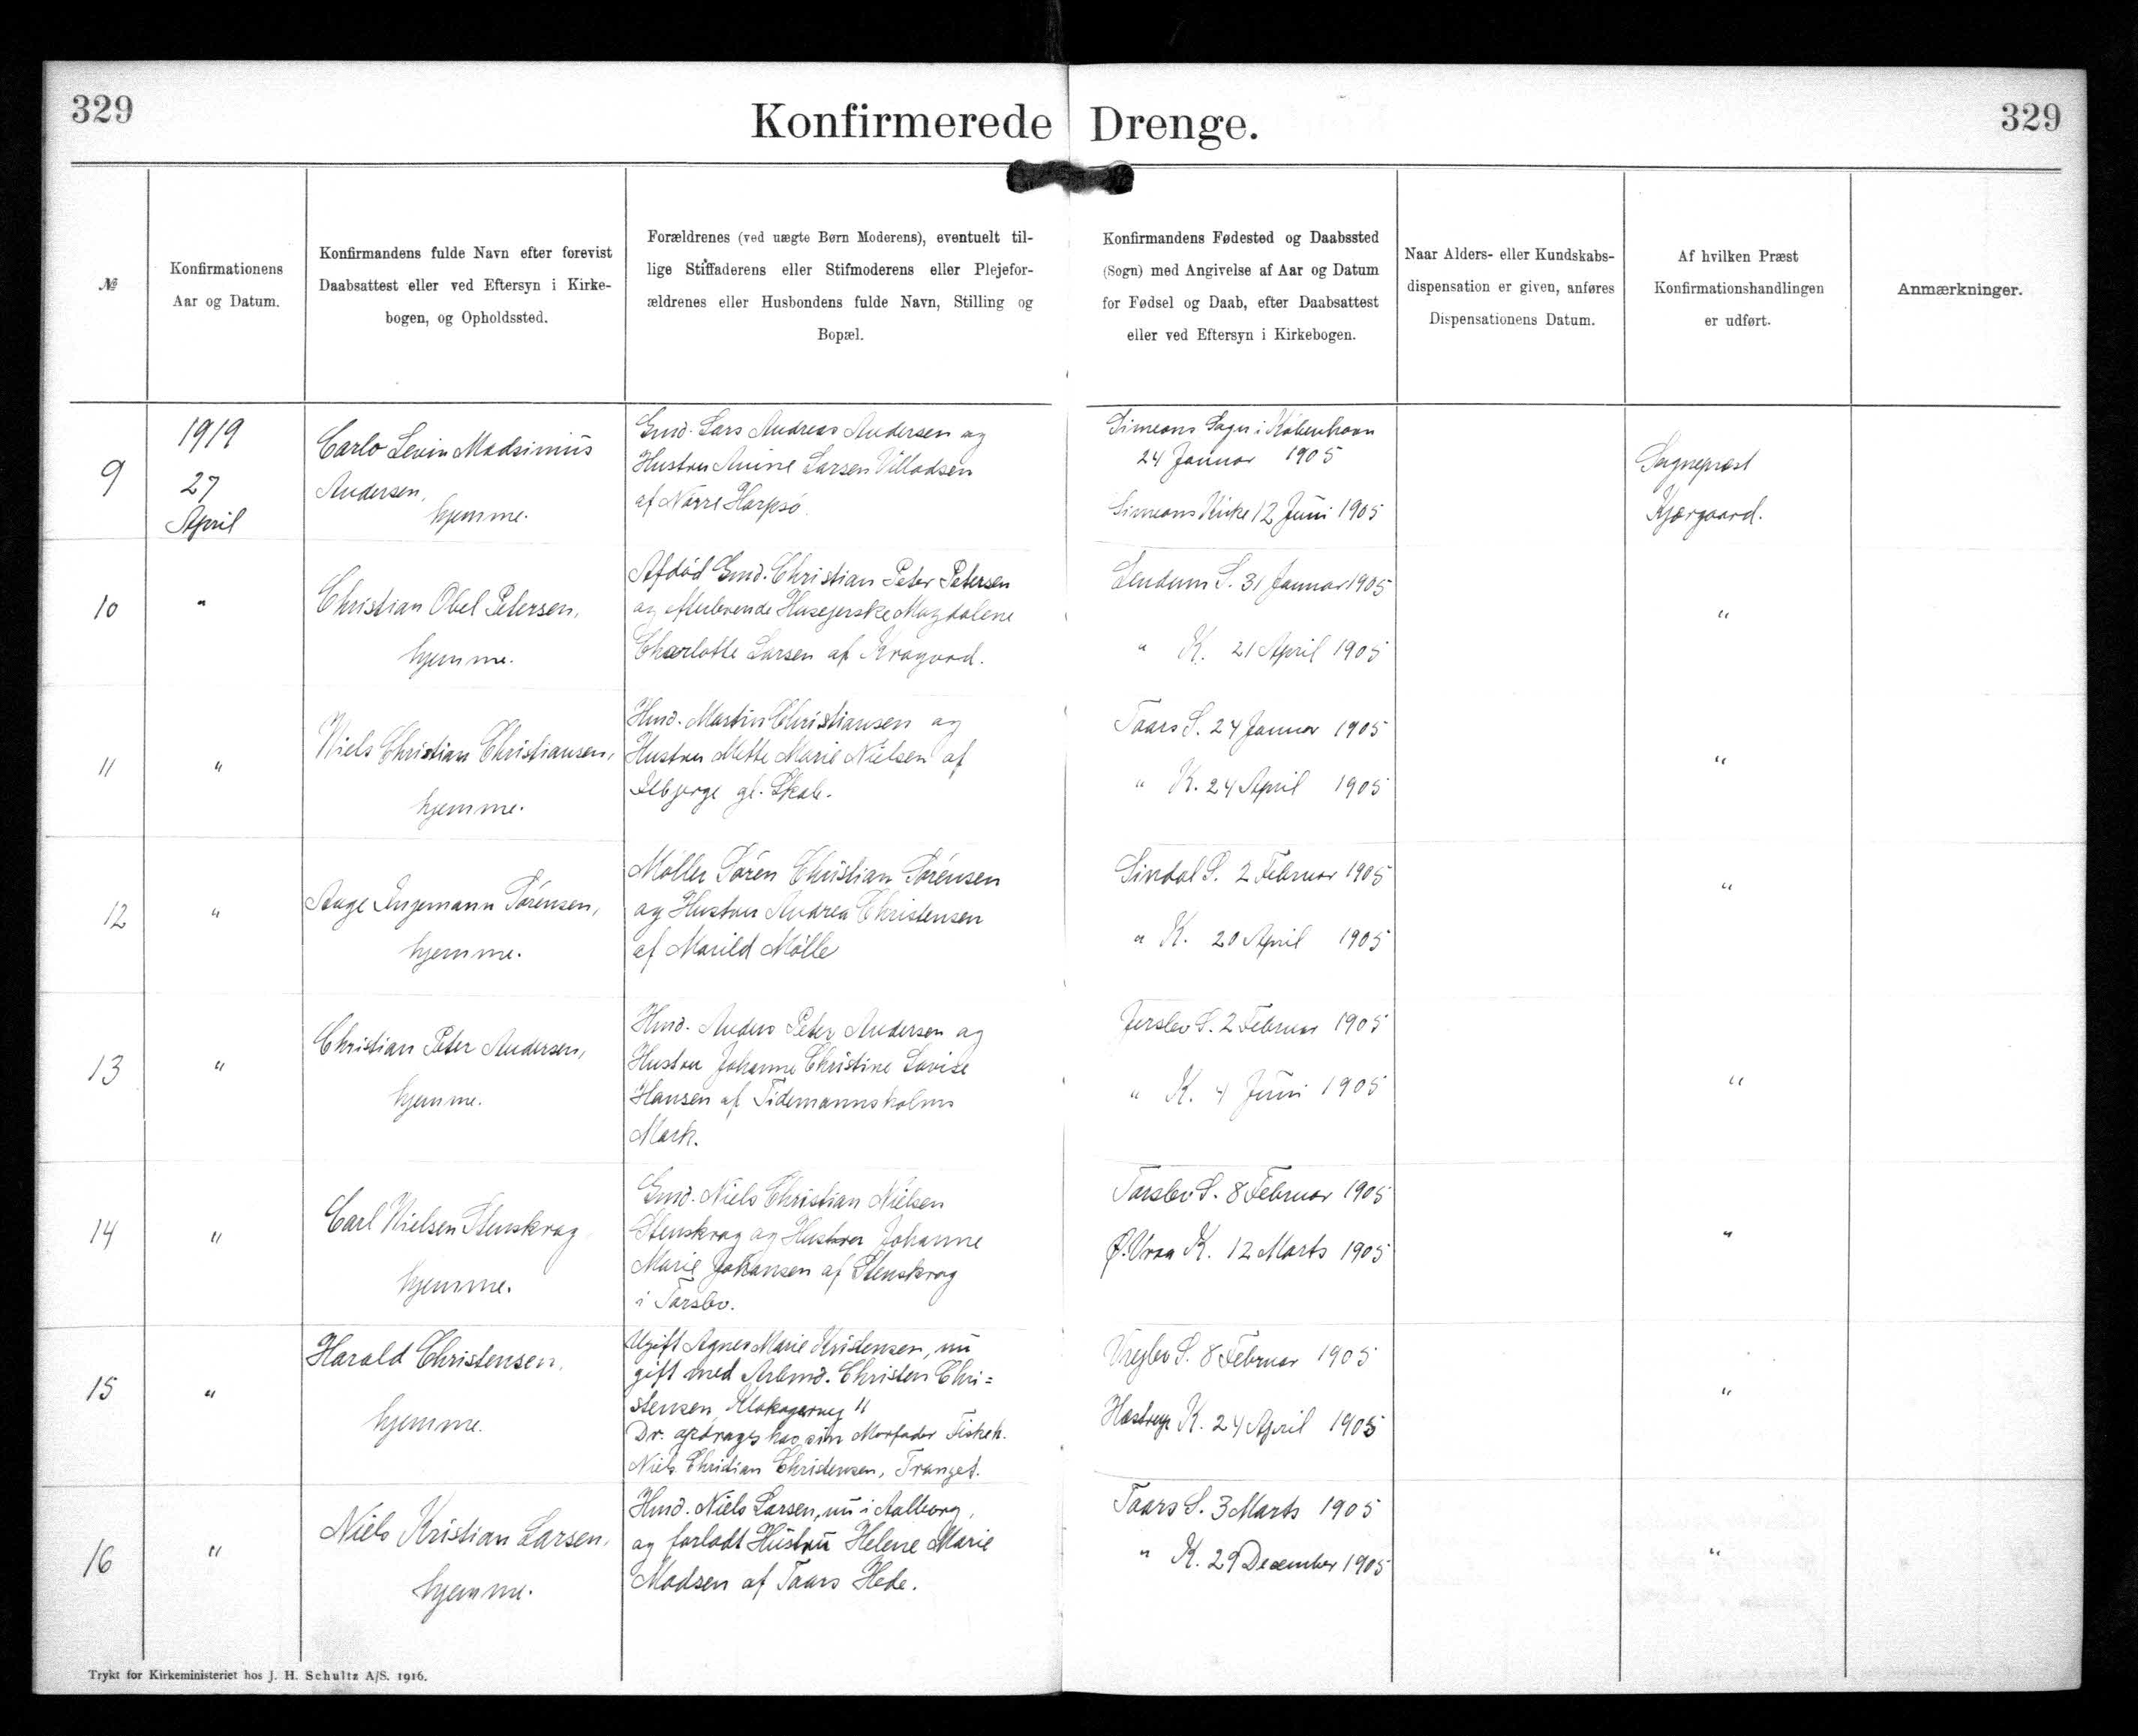 329
Konfirmerede Drenge.
329
№
Konfirmationens
Aar og Datum.
Konfirmandens fulde Navn efter forevist
Daabsattest eller ved Eftersyn i Kirke-
bogen, og Opholdssted.
Forældrenes (ved uægte Børn Moderens), eventuelt til-
lige Stiffaderens eller Stifmoderens eller Plejefor-
ældrenes eller Husbondens fulde Navn, Stilling og
Bopæl.
Konfirmandens Fødested og Daabssted
(Sogn) med Angivelse af Aar og Datum
for Fødsel og Daab, efter Daabsattest
eller ved Eftersyn i Kirkebogen.
Naar Alders- eller Kundskabs-
dispensation er given, anføres
Dispensationens Datum.
Af hvilken Præst
Konfirmationshandlingen
er udført.
Anmærkninger.
9
1919
27
April
Carlo Levin Madsinius
Andersen,
hjemme.
Gmd. Lars Andreas Andersen og
Hustru Anine Larsen Villadsen
af Nørre Harpsø.
Simeons Sogn i København
24 Januar 1905
Simeons Kirke 12 Juni 1905
Sognepræst
Kjærgaard.
10
"
Christian Obel Petersen,
hjemme.
Afdød Gmd. Christian Peter Petersen
og efterlevende Husejerske Magdalene
Charlotte Larsen af Kragvad.
Lendum S. 31 Januar 1905
" K. 21 April 1905
"
11
"
Niels Christian Christiansen,
hjemme.
Hmd. Martin Christiansen og
Hustru Mette Marie Nielsen af
Ilbjerge gl. Skole.
Taars S. 24 Januar 1905
" K. 24 April 1905
"
12
"
Aage Ingemann Sørensen,
hjemme.
Møller Søren Christian Sørensen
og Hustru Andrea Christensen
af Marild Mølle
Sindal S. 2 Februar 1905
" K. 20 April 1905
"
13
"
Christian Peter Andersen,
hjemme.
Hmd. Anders Peter Andersen og
Hustru Johanne Christine Lovise
Hansen af Tidemannsholms
Mark.
Jerslev S. 2 Februar 1905
" K. 4 Juni 1905
"
14
"
Carl Nielsen Stenskrog
hjemme.
Gmd. Niels Christian Nielsen
Stenskrog og Hustru Johanne
Marie Johansen af Stenskrog
i Torslev.
Torslev S. 8 Februar 1905
Ø. Vraa K. 12 Marts 1905
"
15
"
Harald Christensen,
hjemme.
Ugift Agnes Marie Kristensen, nu
gift med Arbmd. Christen Chri=
stensen, 11
Dr. opdrages hos sin Morfader Fiskeh.
Niels Christian Christensen, Tranget.
Vrejlev S. 8 Februar 1905
Hæstrup K. 24 April 1905
"
16
"
Niels Kristian Larsen,
hjemme.
Hmd. Niels Larsen, nu i Aalborg,
og forladt Hustru Helene Marie
Madsen af Taars Hede.
Taars S. 3 Marts 1905
" K. 29 December 1905
"
Trykt for Kirkeministeriet hos J. H. Schultz A/S. 1916.